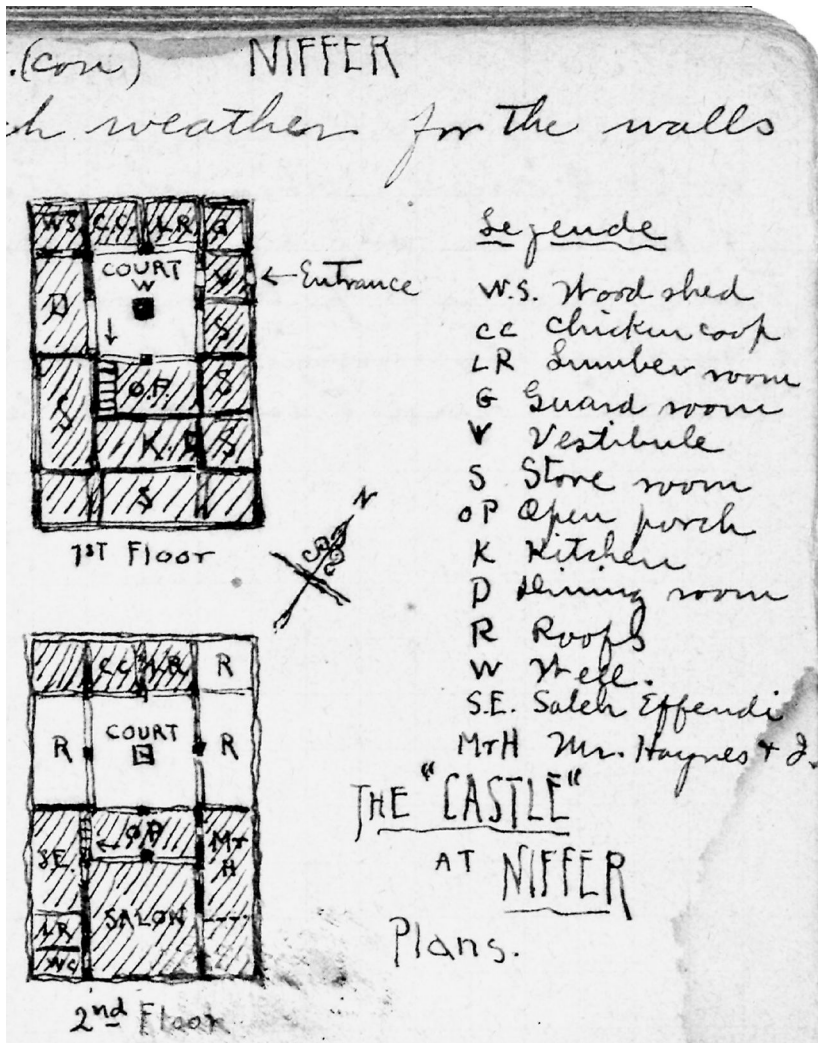 .(con) NIFFER
ch weather for the walls
W.S. C.C. L.R. G
COURT
W
V
← Entrance
D
S
O.P.
S
S
K.
S
S
1ST Floor
N
CC LR R
R
COURT
R
OP
S.E.
M+H
SALON
LR
WC
2nd Floor
Legende
W.S. Wood shed
CC Chicken coop
LR Lumber room
G Guard room
V Vestibule
S Store room
OP Open porch
K Kitchen
D Dining room
R Roofs
W Well.
S.E. Saleh Effendi
M+H Mr. Haynes + I.
THE "CASTLE"
AT NIFFER
Plans.